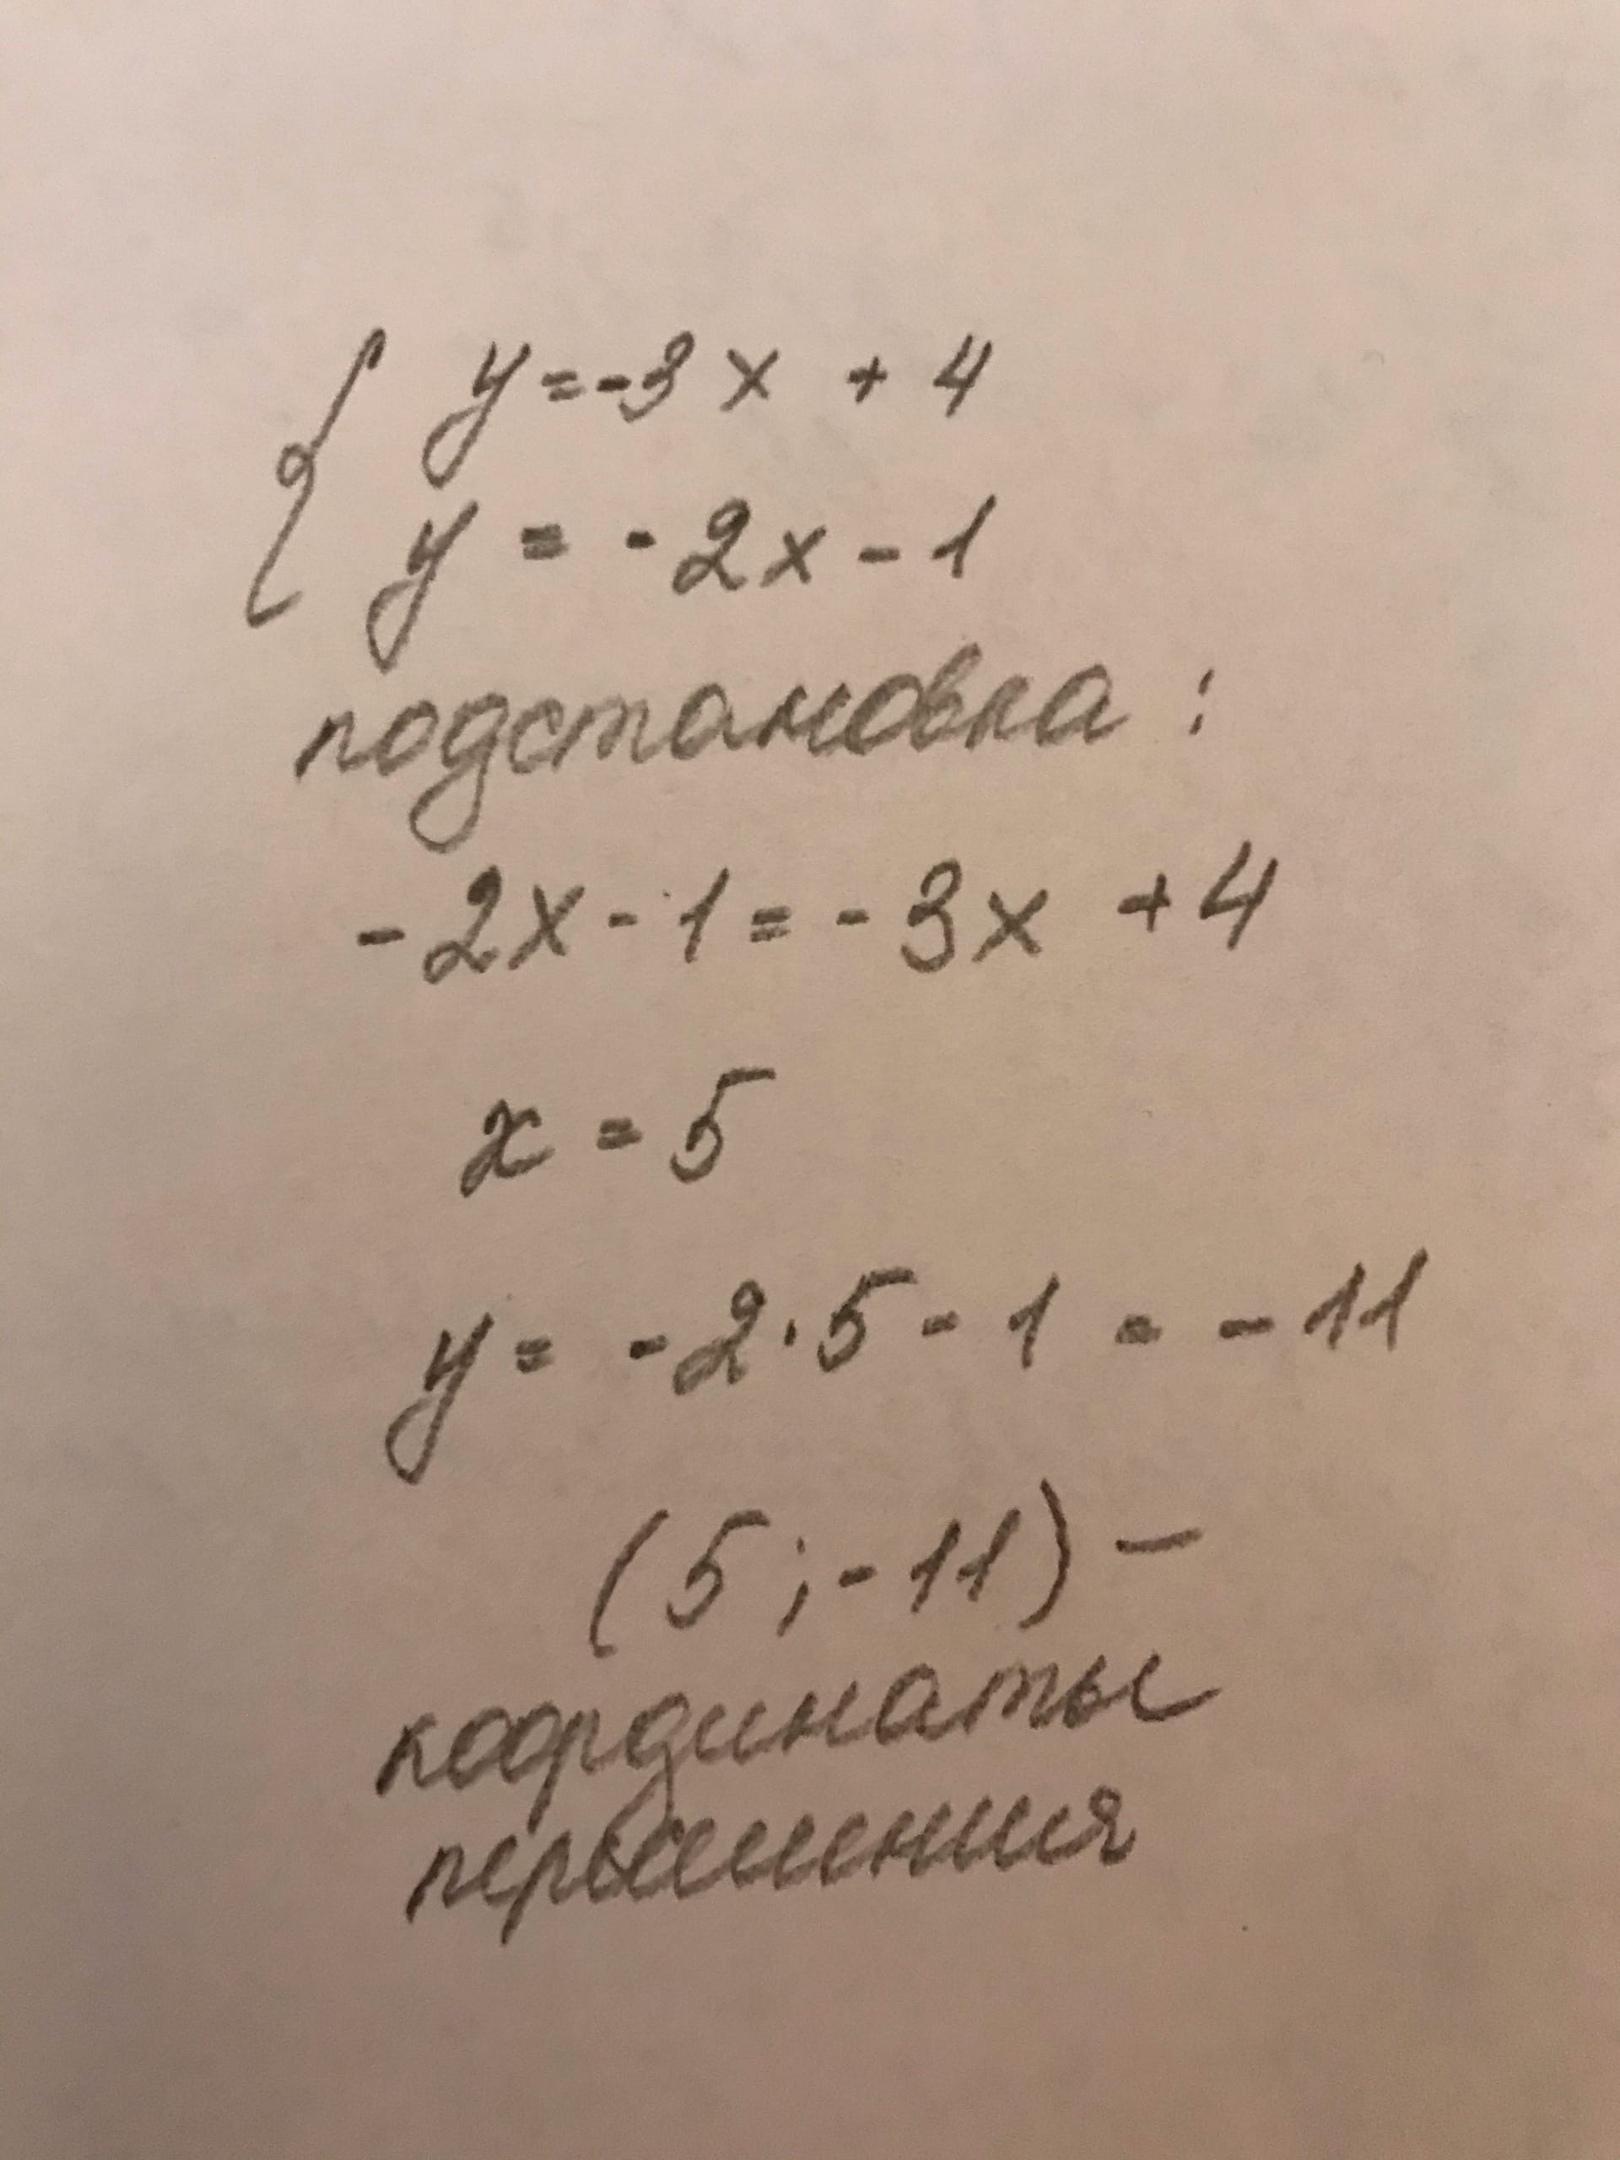 { y = -3x + 4
y = -2x - 1
подстановка:
-2x - 1 = -3x + 4
x = 5
y = -2·5 - 1 = -11
(5; -11) —
координаты